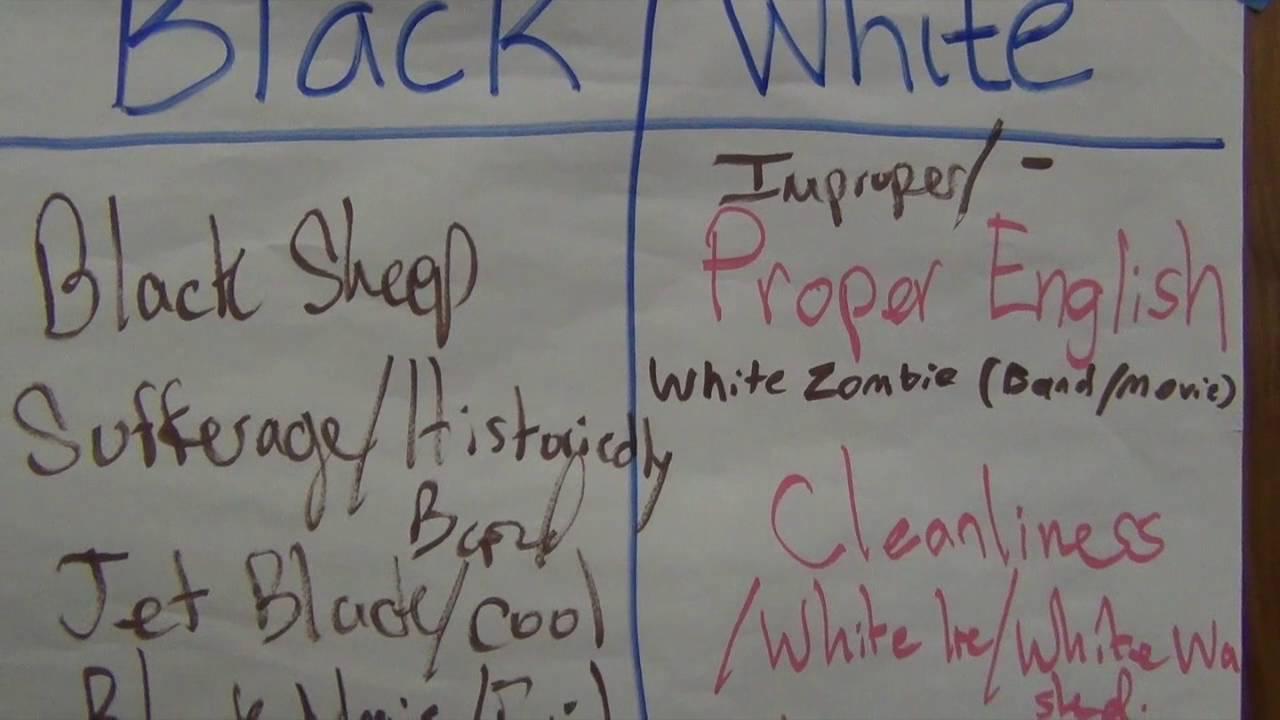 Black / White
Improper/ -
Proper English
Black Sheep
White Zombie (Band/movie)
Sufferage/Historically
Cleanliness
Jet Black/cool
/White lie/White Wa
shed.
Black Magic/Evil